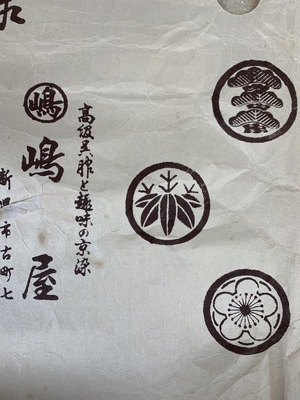 高級呉服と趣味の京染
嶋
嶋屋
新潟市古町七